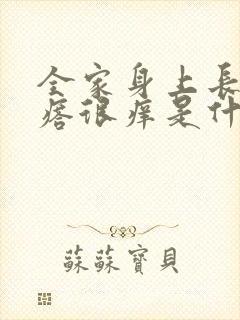 全家身上長
痞很痒是什
蘇蘇寶貝